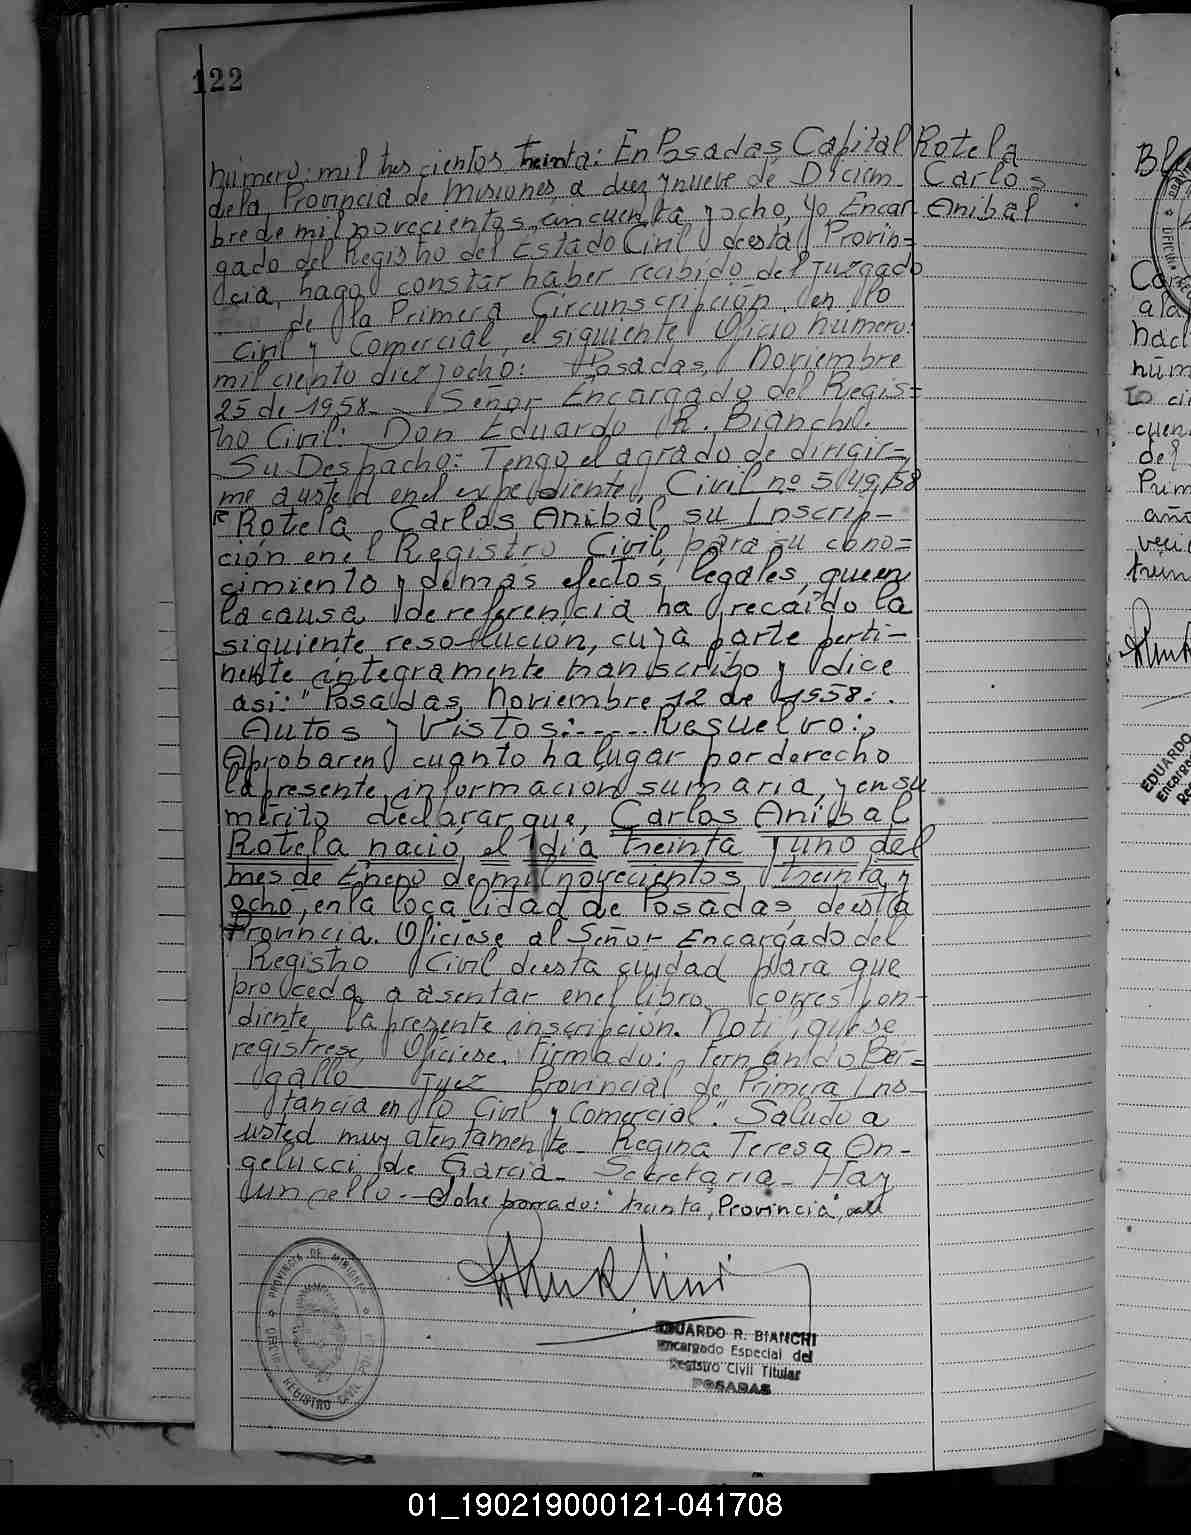 122
Rotela
Carlos
Anibal
número: mil tres cientos treinta: En Posadas, Capital
dela Provincia de Misiones, a diez y nueve de Diciem
bre de mil novecientos cincuenta y ocho, yo Encar
gado del Registro del Estado Civil deesta Provin=
cia, hago constar haber recibido del Juzgado
de la Primera Circunscripción en lo
Civil y Comercial, el siguiente oficio número:
mil ciento diez y ocho: Posadas, Noviembre
25 de 1958. Señor Encargado del Regis=
tro Civil: Don Eduardo R. Bianchi.
Su Despacho: Tengo el agrado de dirigir=
me austed enel expediente Civil nº 549/58
Rotela Carlos Anibal su Inscrip-
ción enel Registro Civil, para su cono=
cimiento y demás efectos legales, queen
la causa dereferencia ha recaído la
siguiente resolución, cuya parte perti-
nente íntegramente transcribo y dice
asi: "Posadas, Noviembre 12 de 1958:
Autos y Vistos:...... Resuelvo:
Aprobaren cuanto halugar porderecho
la presente información sumaria, y ensu
mérito declarar que, Carlos Anibal
Rotela nació el día treinta y uno del
mes de Enero de mil novecientos treinta y
ocho, enla localidad de Posadas, deesta
Provincia. Ofíciese al Señor Encargado del
Registro Civil deesta ciudad para que
proceda a asentar enel libro correspon-
diente, la presente inscripción. Notifíquese
regístrese, Ofíciese. Firmado: Fernando Ber=
gallo Juez Provincial de Primera Ins-
tancia en lo Civil y Comercial." Saludo a
usted muy atentamente - Regina Teresa An-
gelucci de Garcia - Secretaria - Hay
un sello. - Sobre borrado: "treinta, Provincia", vale
PROVINCIA DE MISIONES
REGISTRO CIVIL
EDUARDO R. BIANCHI
Encargado Especial del
Registro Civil Titular
POSADAS
Co
ala
naci
núm
to ci
cuen
del
Prim
año
veci
trein
EDUARDO
Encarga
Re
01_190219000121-041708